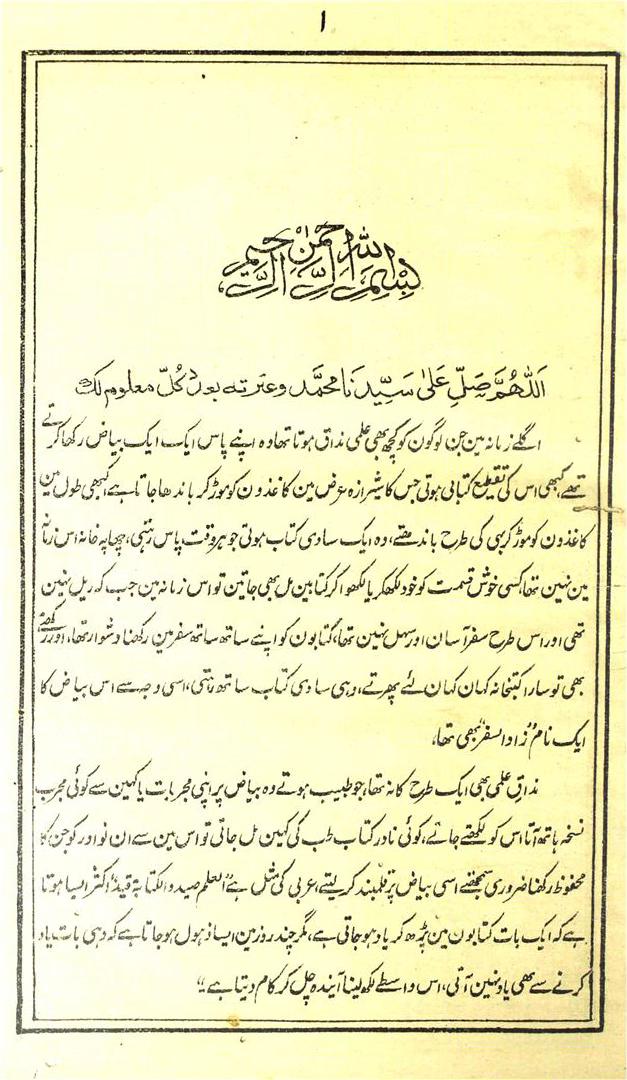 ۱
بسم اللہ الرحمن الرحیم
اَللّٰهُمَّ صَلِّ عَلیٰ سَیِّدِنَا محمَّد وعترته بعدد کُلّ معلوم لک
اگلے زمانہ مین جن لوگون کو کچھ بھی علمی مذاق ہوتا تھا وہ اپنے پاس ایک ایک بیاض رکھا کرتے
تھے، کبھی اس کی تقطیع کتابی ہوتی جس کا شیرازہ عرض مین کاغذون کو موڑ کر باندھا جاتا ہے، کبھی طول مین
کاغذون کو موڑ کر بہی کی طرح باندھتے، وہ ایک سادی کتاب ہوتی جو ہر وقت پاس رہتی، چھاپہ خانہ اس زمانہ
مین نہین تھا، کسی خوش قسمت کو خود لکھکر یا لکھوا کر کتابین مل بھی جاتین تو اس زمانہ مین جب کہ ریل نہین
تھی اور اس طرح سفر آسان اور سہل نہین تھا، کتابون کو اپنے ساتھ ساتھ سفر مین رکھنا دشوار تھا، اور رکھتے
بھی تو سارا کتبخانہ کہان کہان لئے پھرتے، وہی سادی کتاب ساتھ رہتی، اسی وجہ سے اس بیاض کا
ایک نام "زاد السفر" بھی تھا،
مذاق علمی بھی ایک طرح کا نہ تھا، جو طبیب ہوتے وہ بیاض پر اپنی مجربات یا کہین سے کوئی مجرب
نسخہ ہاتھ آتا اس کو لکھتے جاتے، کوئی نادر کتاب طب کی کہین مل جاتی تو اس مین سے ان نوادر کو جن کا
محفوظ رکھنا ضروری سمجھتے اسی بیاض پر قلمبند کر لیتے، عربی کی مثل ہے "العلم صید والکتابۃ قید" اکثر ایسا ہوتا
ہے کہ ایک بات کتابون مین پڑھ کر یاد ہو جاتی ہے، مگر چند روز مین ایسا ذہول ہو جاتا ہے کہ وہی بات یاد
کرنے سے بھی یاد نہین آتی، اس واسطے لکھ لینا آیندہ چل کر کام دیتا ہے"